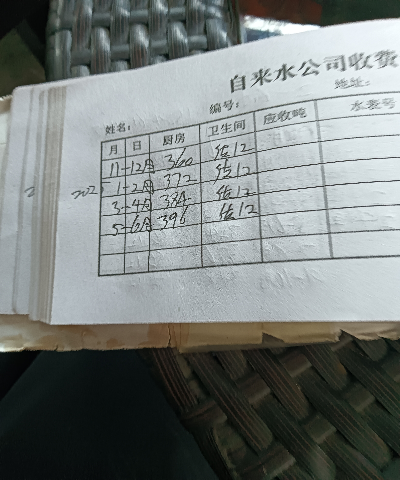 自来水公司收费
姓名: 编号: 地址:
月 日 厨房 卫生间 应收吨 水表号
11-12月 360 估12
202 1-2月 372 估12
3-4月 384 估12
5-6月 396 估12